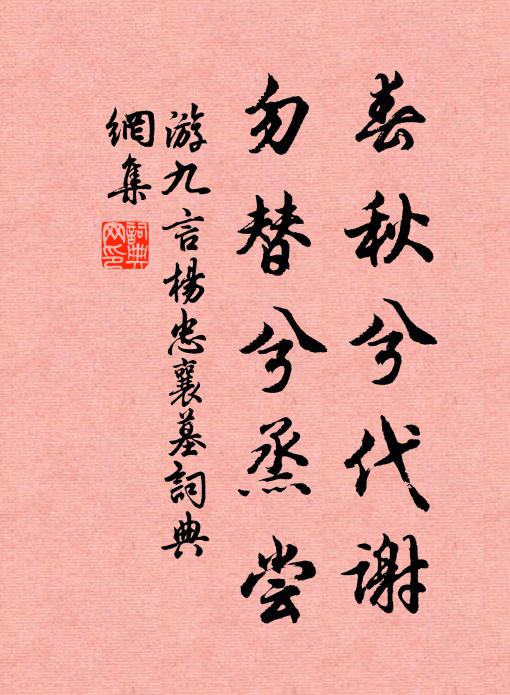 春秋兮代谢
勿替兮烝尝
游九言楊忠襄墓詞典
網集
詞典
网印